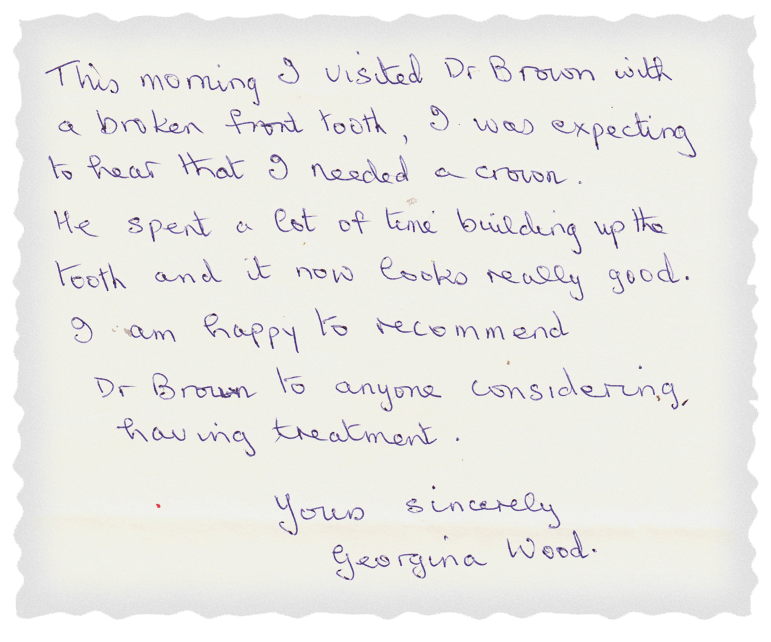 This morning I visited Dr Brown with
a broken front tooth, I was expecting
to hear that I needed a crown.
He spent a lot of time building up the
tooth and it now looks really good.
I am happy to recommend
Dr Brown to anyone considering,
having treatment.
Yours sincerely
Georgina Wood.